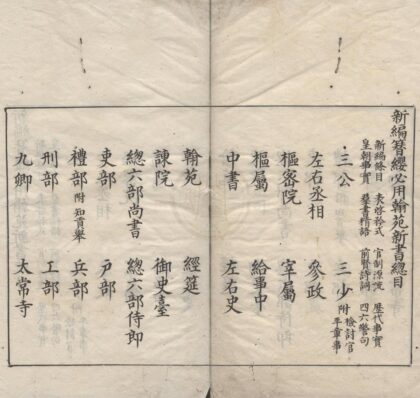 新編簪纓必用翰苑新書總目
新編條目 表啓矜式 官制源流 歷代事實
皇朝事實 羣書精語 前賢詩詞 四六警句
三公 三少 附檢討官平章事
左右丞相 參政
樞密院 宰屬
樞屬 給事中
中書 左右史
翰苑 經筵
諫院 御史臺
總六部尚書 總六部侍郎
吏部 戸部
禮部 附知貢舉 兵部
刑部 工部
九卿 太常寺